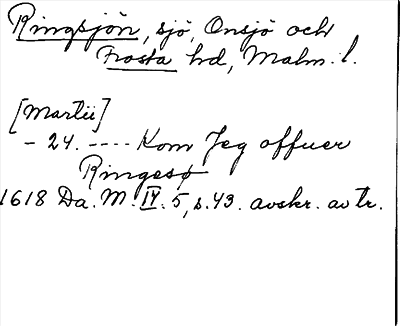 Ringsjön, sjö, Onsjö och
Frosta hd, Malm. l.
[Martii]
- 24. ---- Kom Jeg offuer
Ringesø
1618 Da. M. IV. 5, s. 43. avskr. av tr.